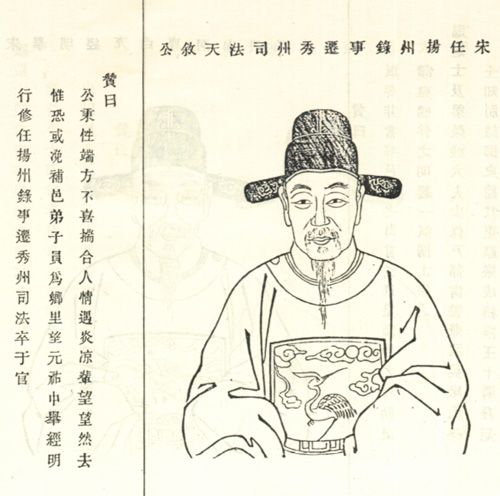 宋任揚州錄事遷秀州司法天敘公
贊曰
公秉性端方不喜揣合人情遇炎凉輩望望然去
惟恐或浼補邑弟子員爲鄉里望元祐中舉經明
行修任揚州錄事遷秀州司法卒于官